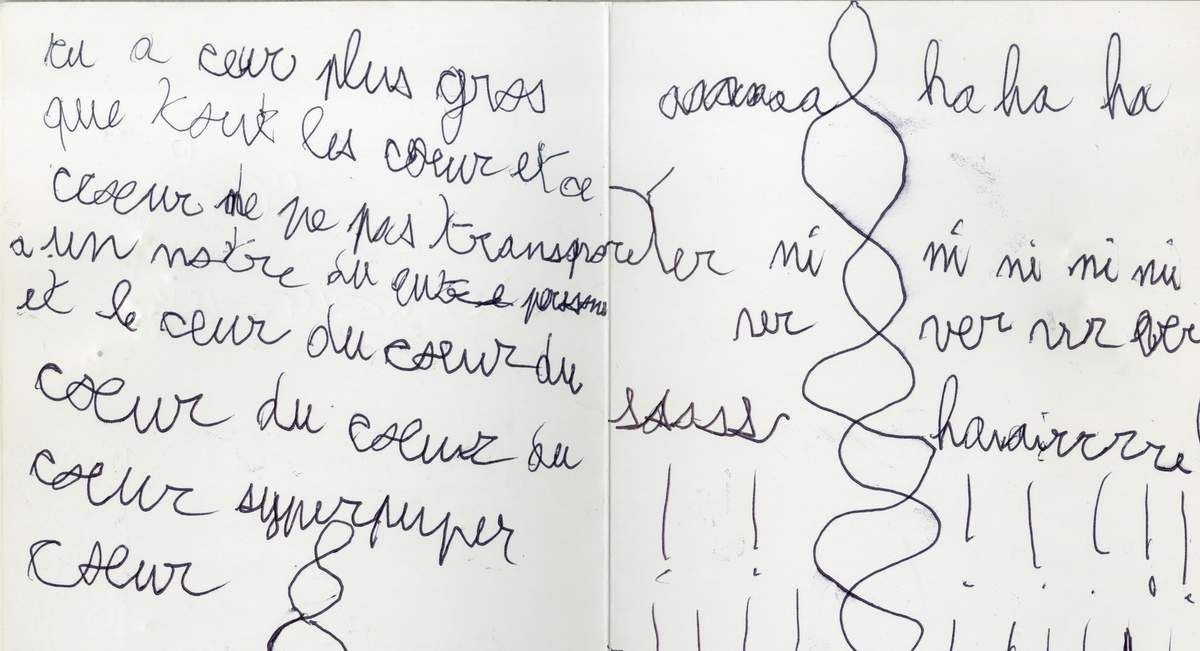 tu a ceur plus gros
que tout les coeur et ce
coeur de ne pas transporter
a un notre du
et le ceur du coeur du
coeur du coeur du
coeur syperpuper
coeur
aaaaaaa ha ha ha
ni ni ni ni ni
ver ver ver ver
sssss haiairrrre
! ! ! ! ! ! !